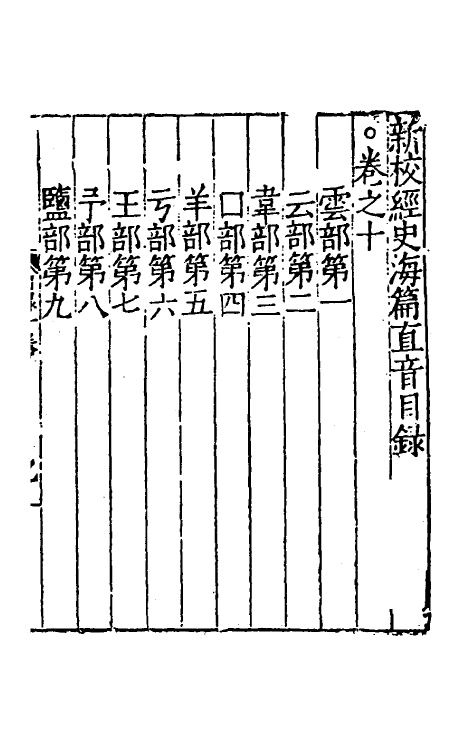 新校經史海篇直音目録
○卷之十
雲部第一
云部第二
韋部第三
囗部第四
羊部第五
亏部第六
王部第七
予部第八
鹽部第九